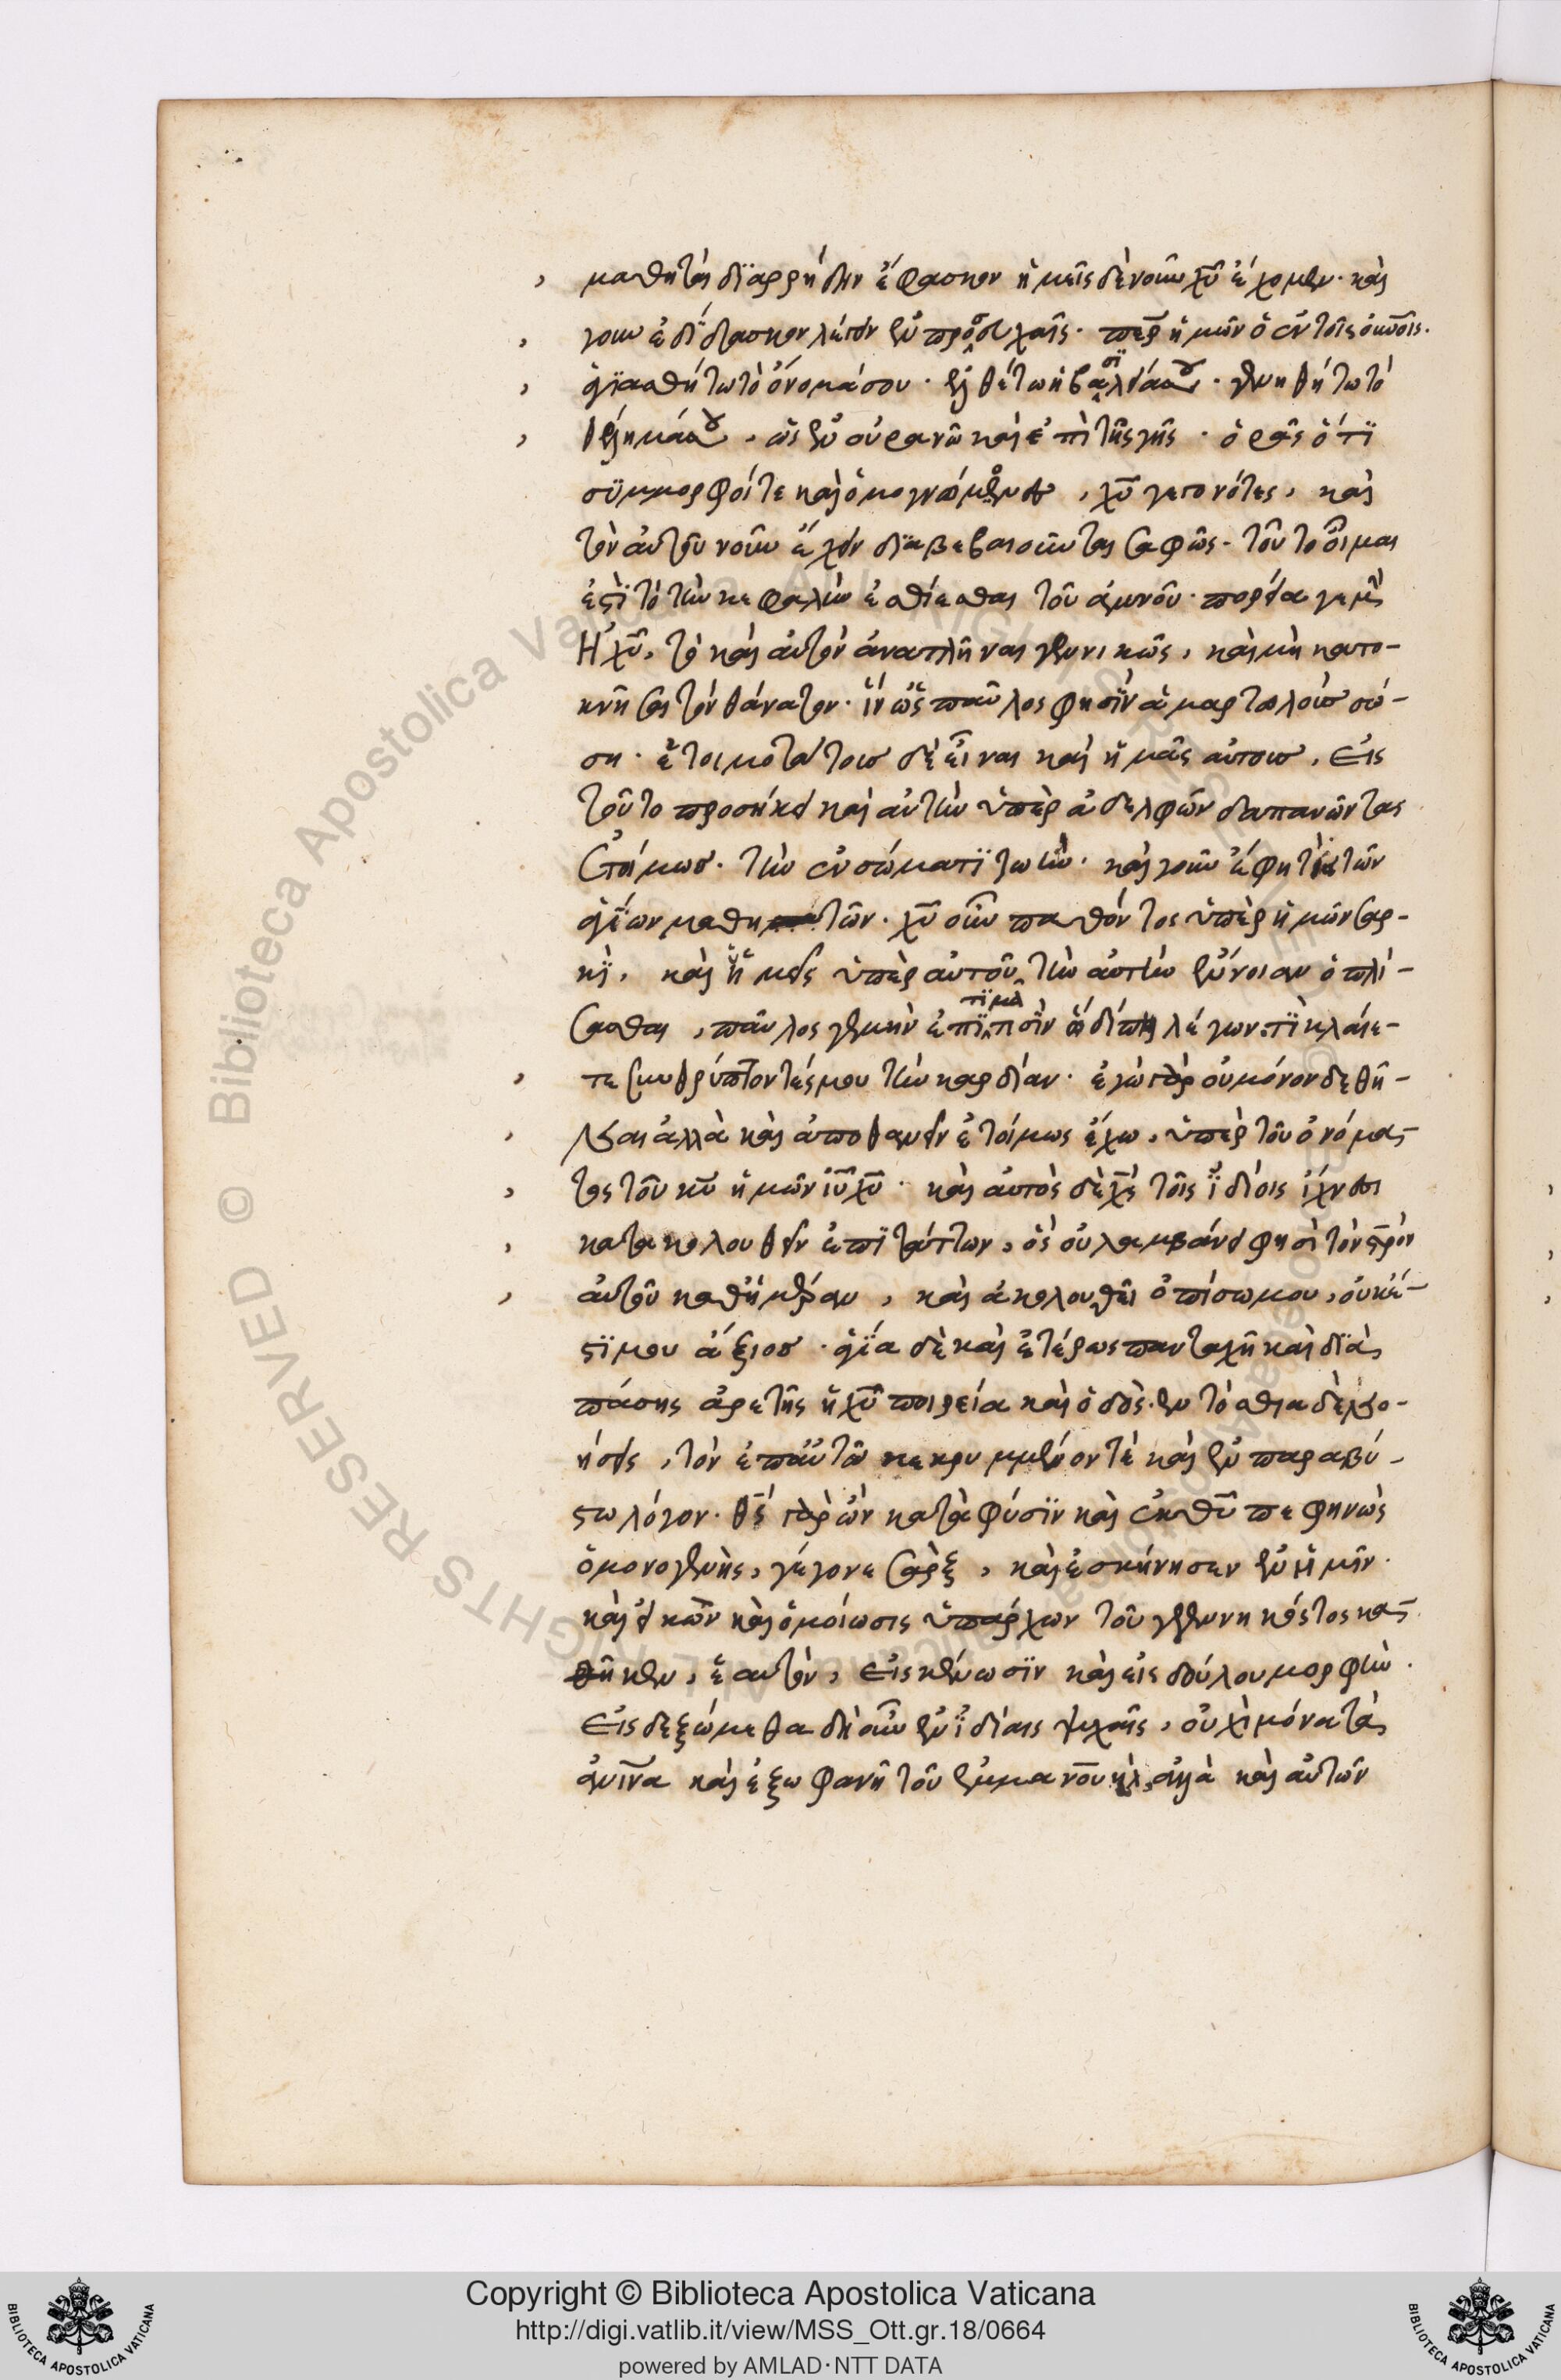 μαθηταὶ διαρρήδην ἔφασκον ἡμεῖς δὲ νοῦν χυ ἔχομεν. καὶ
γοῦν ἐδίδασκον λέγειν ἐν προσευχαῖς. περ ἡμῶν ὁ ἐν τοῖς οὐνοῖς.
ἁγιασθήτω τὸ ὄνομά σου. ἐλθέτω ἡ βασιλεία σου. γενηθήτω τὸ
θέλημά σου, ὡς ἐν οὐρανῶ καὶ ἐπὶ τῆς γῆς. ὁρᾶς ὅτι
σύμμορφοί τε καὶ ὁμογνώμονες, χυ γεγονότες, καὶ
τὸν αὐτοῦ νοῦν ἔχειν διαβεβαιοῦνται σαφῶς. τοῦτο οἶμαι
ἐστὶ τὸ τὴν κεφαλὴν ἐσθίεσθαι τοῦ ἀμνοῦ. πορεία γε μὴν
ἡ χυ, τὸ καὶ αὐτὸν ἀνατλῆναι γεννικῶς, καὶ μὴ κατο-
κνῆσαι τὸν θάνατον. ἵν ὡς παῦλος φησὶν ἁμαρτωλοὺς σώ-
ση. ἑτοιμοτάτους δὲ εἶναι καὶ ἡμᾶς αὐτοὺς, εἰς
τοῦτο προσήκει καὶ αὐτὴν ὑπὲρ ἀδελφῶν δαπανῶντας
ἑτοίμως. τὴν ἐν σώματι ζωὴν. καὶ γοῦν ἔφη τὶς τῶν
ἁγίων μαθητῶν. χυ οὖν παθόντος ὑπὲρ ἡμῶν σαρ-
κὶ, καὶ ἡμεῖς ὑπὲρ αὐτοῦ τὴν αὐτὴν ἔννοιαν ὁπλί-
σασθαι, παῦλος γεμὴν ἐπιτιμᾶ λέγων. τὶ κλαίε-
τε συνθρύπτοντές μου τὴν καρδίαν. ἐγὼ γὰρ οὐ μόνον δεθῆ-
ναι ἀλλὰ καὶ ἀποθανεῖν ἑτοίμως ἔχω, ὑπὲρ τοῦ ὀνόμα-
τος τοῦ κυ ἡμῶν ιυ χυ. καὶ αὐτὸς δὲ χς τοῖς ἰδίοις ἴχνεσι
κατακολουθεῖν ἐπιτάττων, ὃς οὐ λαμβάνει φησὶ τὸν στρον
αὐτοῦ καθ ἡμέραν, καὶ ἀκολουθεῖ ὀπίσω μου, οὐκ ἔ-
στι μου ἄξιος. ἁγία δὲ καὶ ἑτέρως πανταχῆ καὶ διὰ
πάσης ἀρετῆς ἡ χυ πορεία καὶ ὁδός. ἐντόσθια δὲ νο-
ήσεις, τὸν ἐπ αὐτῶ κεκρυμμένον τὲ καὶ ἐν παραβύ-
στω λόγον. θς γὰρ ὢν κατὰ φύσιν καὶ ἐκ θυ πεφηνὼς
ὁ μονογενὴς, γέγονε σὰρξ, καὶ ἐσκήνησεν ἐν ἡμῖν.
καὶ εἰκὼν καὶ ὁμοίωσις ὑπάρχων τοῦ γεγεννηκότος κα-
θῆκεν, ἑαυτὸν, εἰς κένωσιν καὶ εἰς δούλου μορφὴν.
εἰσδεξώμεθα δὴ οὖν ἐν ἰδίαις ψυχαῖς, οὐχὶ μόνα τὰ
ἀνινα καὶ ἔξω φανῆ τοῦ ἐμμανουὴλ, ἀλλὰ καὶ αὐτῶν
Copyright © Biblioteca Apostolica Vaticana
http://digi.vatlib.it/view/MSS_Ott.gr.18/0664
powered by AMLAD·NTT DATA